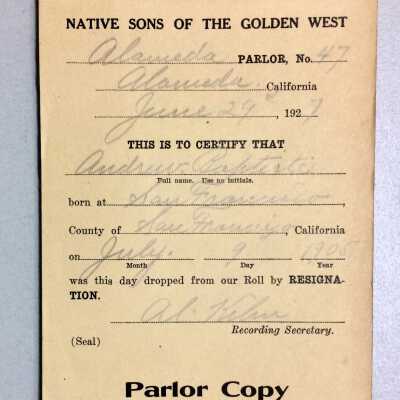 NATIVE SONS OF THE GOLDEN WEST
Alameda PARLOR, No. 47
Alameda California
June 29 1927
THIS IS TO CERTIFY THAT
Andrew
Full name. Use no initials.
born at San Francisco
County of San Francisco, California
on July 9
Month Day Year
was this day dropped from our Roll by RESIGNA-
TION.
Al.
Recording Secretary.
(Seal)
Parlor Copy